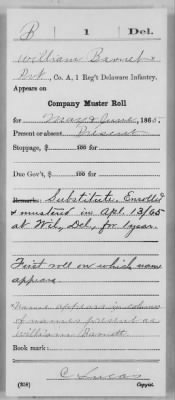 B 1 Del.
William Barnet
Pvt, Co. A, 1 Reg't Delaware Infantry.
Appears on
Company Muster Roll
for May & June, 1865.
Present or absent Present
Stoppage, $ 100 for
Due Gov't, $ 100 for
Remarks: Substitute. Enrolled
& musterd in Apl. 13/65
at Wil, Del, for 1 year.
First roll on which name
appears.
Name appears in column
of names present as
William Barnett
Book mark:
C Lucas
(358) Copyist.